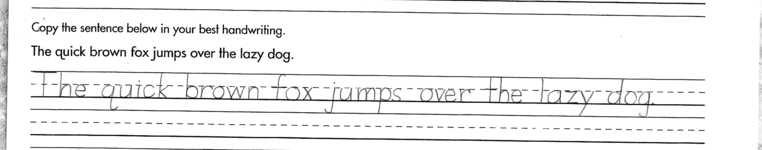 Copy the sentence below in your best handwriting.
The quick brown fox jumps over the lazy dog.
The quick brown fox jumps over the lazy dog.